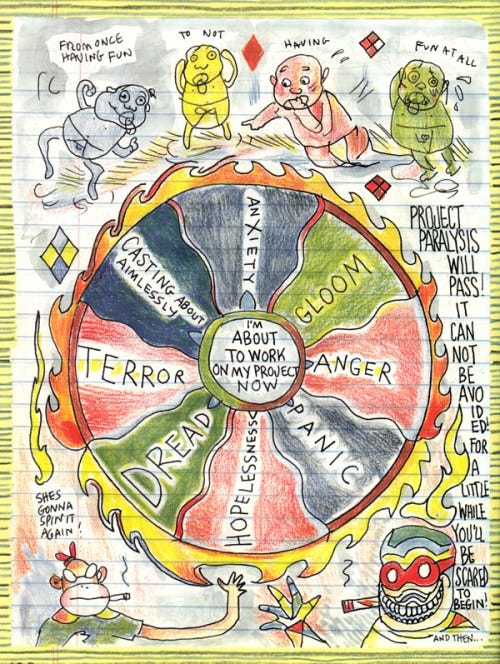 FROM ONCE
HAVING FUN
TO NOT
HAVING
FUN AT ALL
ANXIETY
GLOOM
ANGER
PANIC
HOPELESSNESS
DREAD
TERROR
CASTING ABOUT
AIMLESSLY
I'M
ABOUT
TO WORK
ON MY PROJECT
NOW
PROJECT
PARALYSIS
WILL
PASS!
IT
CAN
NOT
BE
AVO
ID
ED!
FOR
A
LITTLE
WHILE
YOU'LL
BE
SCARED
TO
BEGIN!
SHES
GONNA
SPIN IT
AGAIN!
AND THEN...